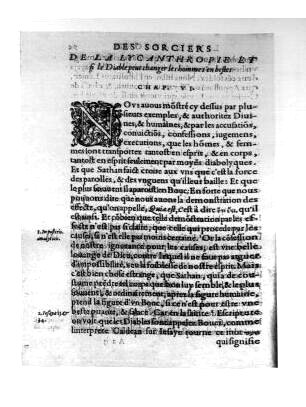 DES SORCIERS
DE LA LYCANTHROPIE ET
si le Diable peut changer les hommes en bestes
CHAP. VI.
NOVs auons mõstré cy dessus par plu-
sieurs exemples, & authoritez Diui-
nes, & humaines, & par les accusatiõs,
conuictiõs, confessions, iugemens,
executions, que les hõmes, & fem-
mes sont transportez tantost en esprit, & en corps,
tantost en esprit seulement par moyẽs diabolyques.
Et que Sathan faict croire aux vns que c'est la force
des parolles, & des vnguens qu'il leur baille: Et que
le plus souuent il apparoist en Bouc. En sorte que nous
pouuons dire que nous auons la demonstration des
effects, qu'on appelle, Quia est, c'est à dire qu'il
est ainsi. Et põbien que telle demõstration par les ef-
fects n'est pas si claire, que celle qui procede par les
causes, si n'est elle pas moins certaine. Or la cõfession
de nostre ignorance pour les causes, est vne belle
loüange de Dieu, contre lequel il ne faut pas arguer
d'impossibilité, veu la foiblesse de nostre esprit. Mais
c'est bien chose estrange, que Sathan, qui a de cou-
stume prẽdre tel corps que bon luy semble, & le plus
souuent, & ordinairement, apres la figure humaine,
prend la figure d'vn Bouc, si ce n'est pour estre vne
beste puante, & salace. Car en la saincte Escripture
on voit que les Diables sont appellez Boucs, comme
interprete
qui signifie